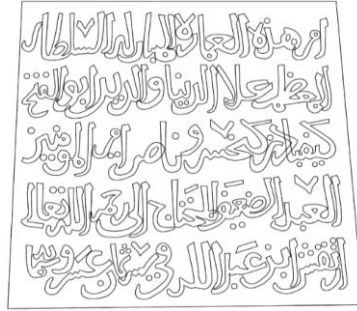 امر هذه العمارة المباركة السلطان
المعظم علا الدنيا والدين ابو الفتح
كيقباد بن كيخسرو ناصر امير المومنين
العبد الضعيف المحتاج الى رحمة الله تعالى
ابن عبد الله في ثمان عشر وستمائة